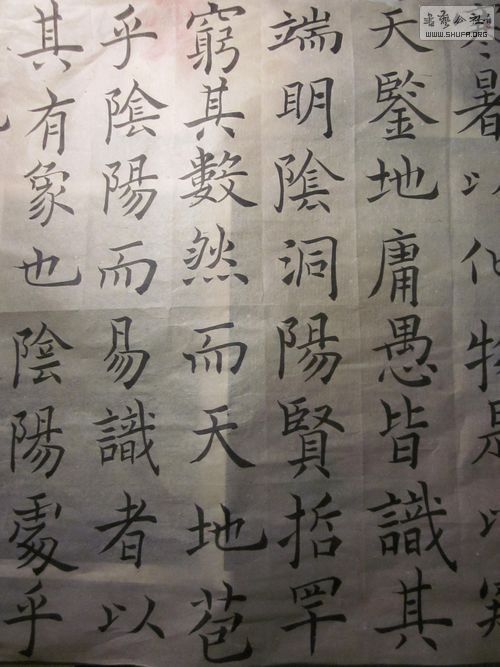 書藝公社
WWW.SHUFA.ORG
寒暑以化物是以窺
天鑒地庸愚皆識其
端明陰洞陽賢哲罕
窮其數然而天地苞
乎陰陽而易識者以
其有象也陰陽處乎